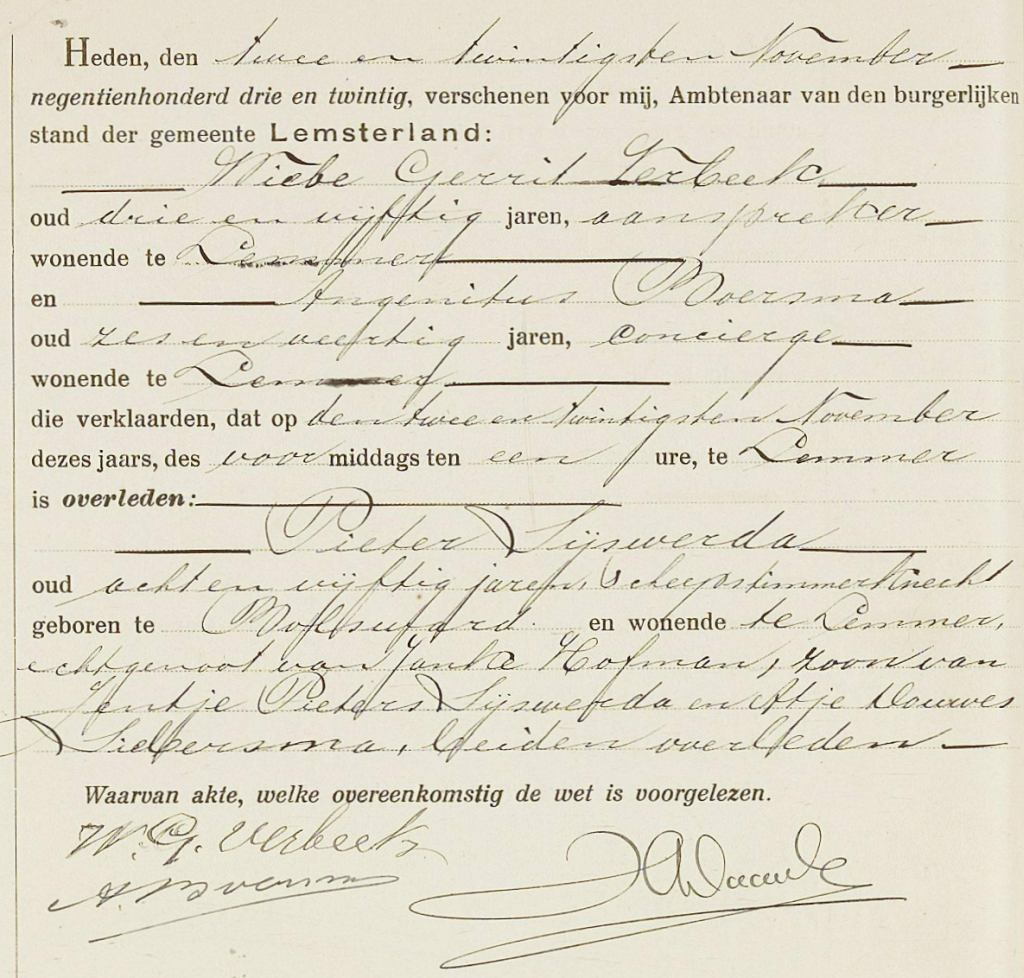 Heden, den twee en twintigsten November
negentienhonderd drie en twintig, verschenen voor mij, Ambtenaar van den burgerlijken
stand der gemeente Lemsterland:
Wiebe Gerrit Verbeek
oud drie en vijftig jaren, aanspreker
wonende te Lemmer
en Angenitus Boersma
oud zes en veertig jaren, concierge
wonende te Lemmer
die verklaarden, dat op den twee en twintigsten November
dezes jaars, des voormiddags ten een ure, te Lemmer
is overleden:
Pieter Sijswerda
oud acht en vijftig jaren, scheepstimmerknecht
geboren te Bolsward en wonende te Lemmer,
echtgenoot van Janke Hofman, zoon van
Jentje Pieters Sijswerda en Atje Douwes
Siebersma, beiden overleden
Waarvan akte, welke overeenkomstig de wet is voorgelezen.
W. G. Verbeek
A. Boersma